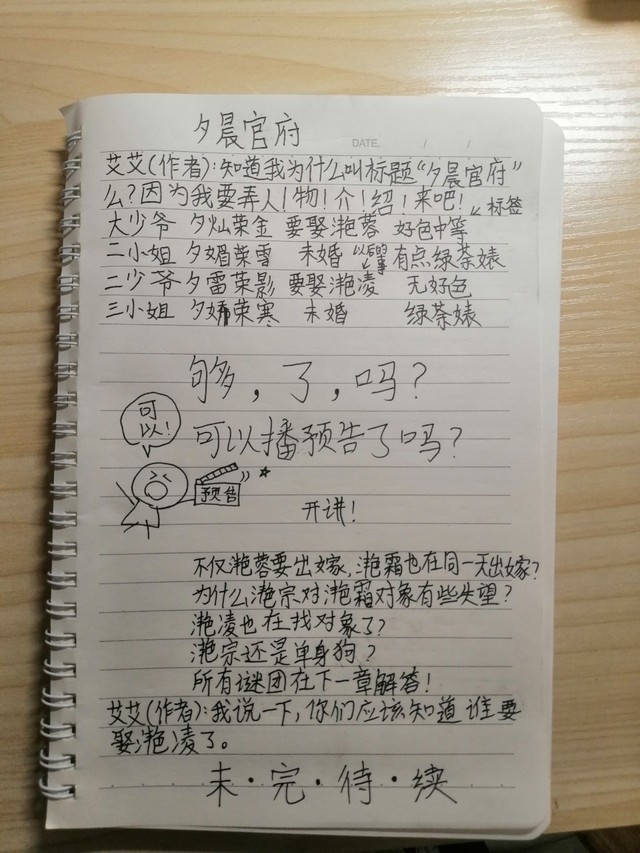 夕晨官府
DATE. / /
艾艾(作者):知道我为什么叫标题“夕晨官府”
么?因为我要弄人!物!介!绍!来吧!
标签
大少爷 夕灿荣金 要娶滟蓉 好色中等
二小姐 夕媚荣雪 未婚 以后的事 有点绿茶婊
二少爷 夕雷荣影 要娶滟凌 无好色
三小姐 夕娇荣寒 未婚 绿茶婊
够,了,吗?
可以!
可以播预告了吗?
预告
开讲!
不仅滟蓉要出嫁,滟霜也在同一天出嫁?
为什么滟宗对滟霜对象有些失望?
滟凌也在找对象了?
滟宗还是单身狗?
所有谜团在下一章解答!
艾艾(作者):我说一下,你们应该知道谁要
娶滟凌了。
未·完·待·续